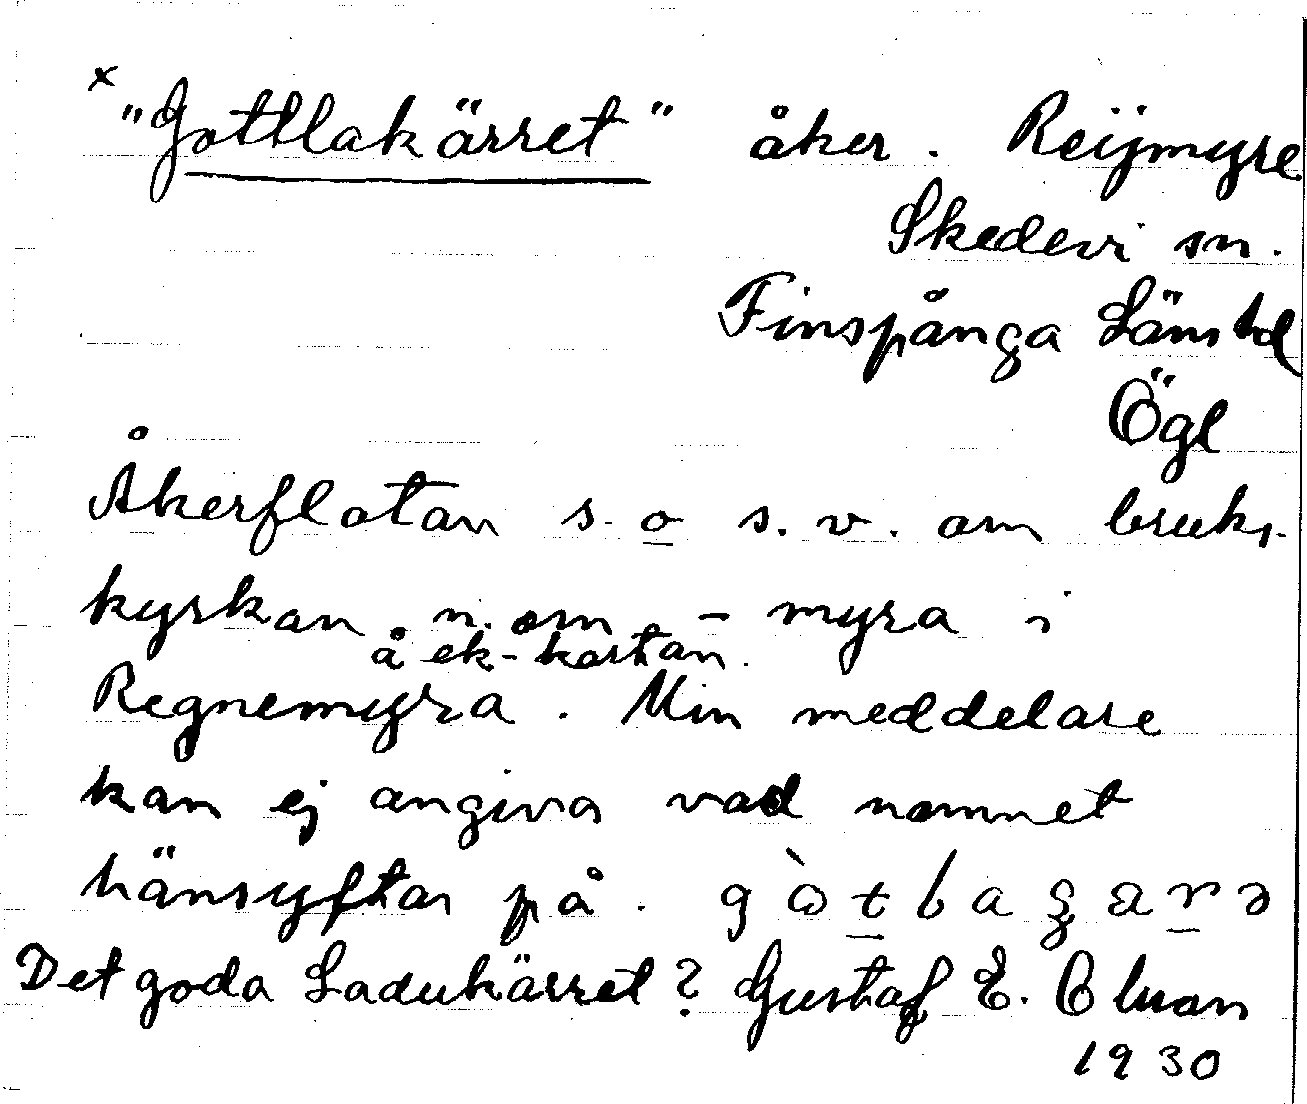 x "Gottlakärret" åker. Reijmyre
Skedevi sn.
Finspånga Läns hd
Ögl
Åkerflatan s. o s. v. om bruks-
kyrkan n. om - myra i
å ek-kartan.
Regnemyra. Min meddelare
kan ej angiva vad namnet
hänsyftar på.
Det goda Ladukärret? Gustaf E.
1930